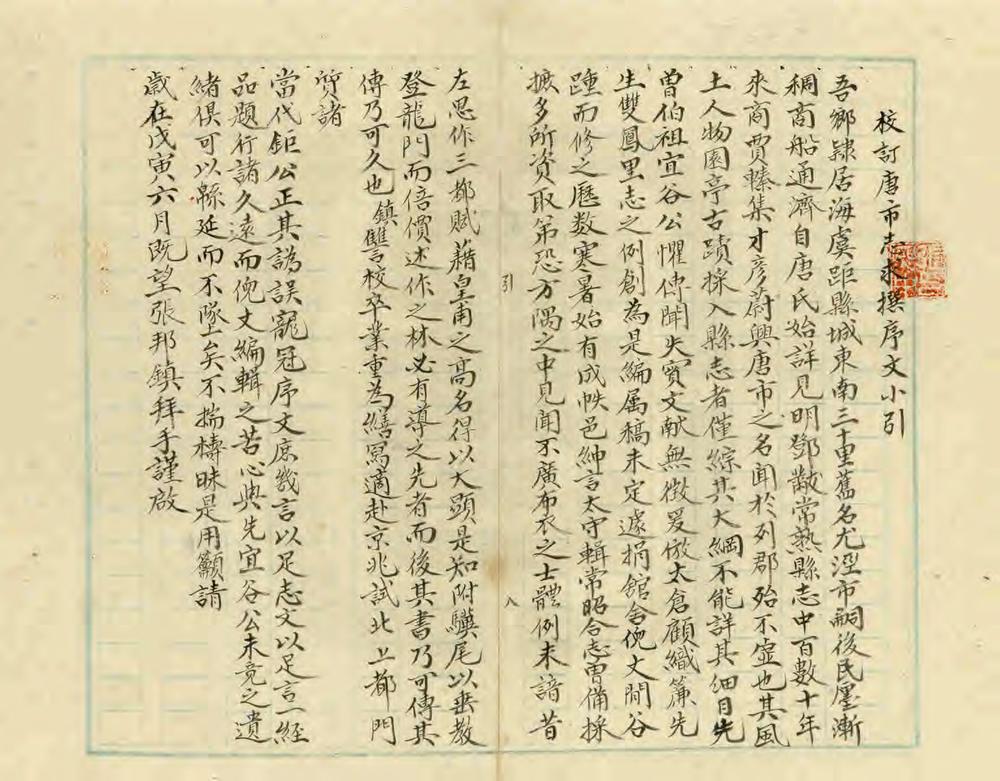 校訂唐市志求撰序文小引
吾鄉隷居海虞距縣城東南三十里舊名尤涇市嗣後民廛漸
稠商船通濟自唐氏始詳見明鄧韍常熟縣志中百數十年
來商賈轃集才彦蔚興唐市之名聞於列郡殆不虛也其風
土人物園亭古蹟採入縣志者僅綜其大綱不能詳其細目先
曾伯祖宜谷公懼傳聞失實文献無徵爰倣太倉顧織簾先
生雙鳳里志之例創為是編属稿未定遽捐舘舍倪丈閒谷
踵而修之歷数寒暑始有成帙邑紳言太守輯常昭合志曾備採
摭多所資取第恐方隅之中見聞不廣布衣之士體例未諳昔
引
八
左思作三都賦藉皇甫之高名得以大顕是知附驥尾以垂教
登龍門而倍價述作之林必有導之先者而後其書乃可傳其
傳乃可久也鎮讐校卒業重為繕寫適赴京兆試北上都門
質諸
當代鉅公正其譌誤寵冠序文庶幾言以足志文以足言一経
品題行諸久遠而倪丈編輯之苦心與先宜谷公未竟之遺
緒俱可以緜延而不墜矣不揣檮昧是用籲請
歲在戊寅六月既望張邦鎮拜手謹啟